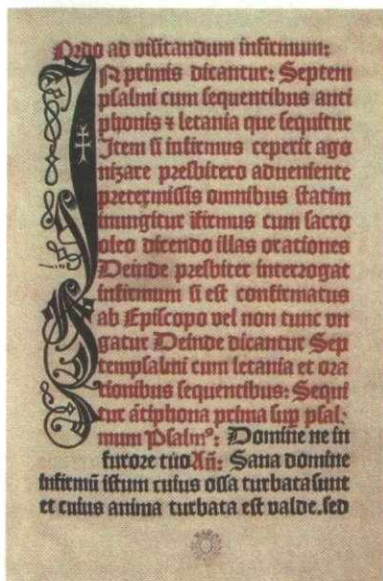 Ordo ad visitandum infirmum:
In primis dicantur: Septem
psalmi cum sequentibus anti
phonis ⁊ letania que sequitur
Item si infirmus ceperit ago
nizare presbitero adueniente
pretermissis omnibus statim
inungitur ifirmus cum sacro
oleo dicendo illas orationes
Deinde presbiter interrogat
infirmum si est confirmatus
ab Episcopo vel non tunc vn
gatur Deinde dicantur Sep
tempsalmi cum letania et ora
tionibus sequentibus: Sequi
tur ātiphona prima sup psal-
mum Psalmꝰ: Domine ne in
furore tuo Añ: Sana domine
infirmū istum cuius ossa turbata sunt
et cuius anima turbata est valde. sed